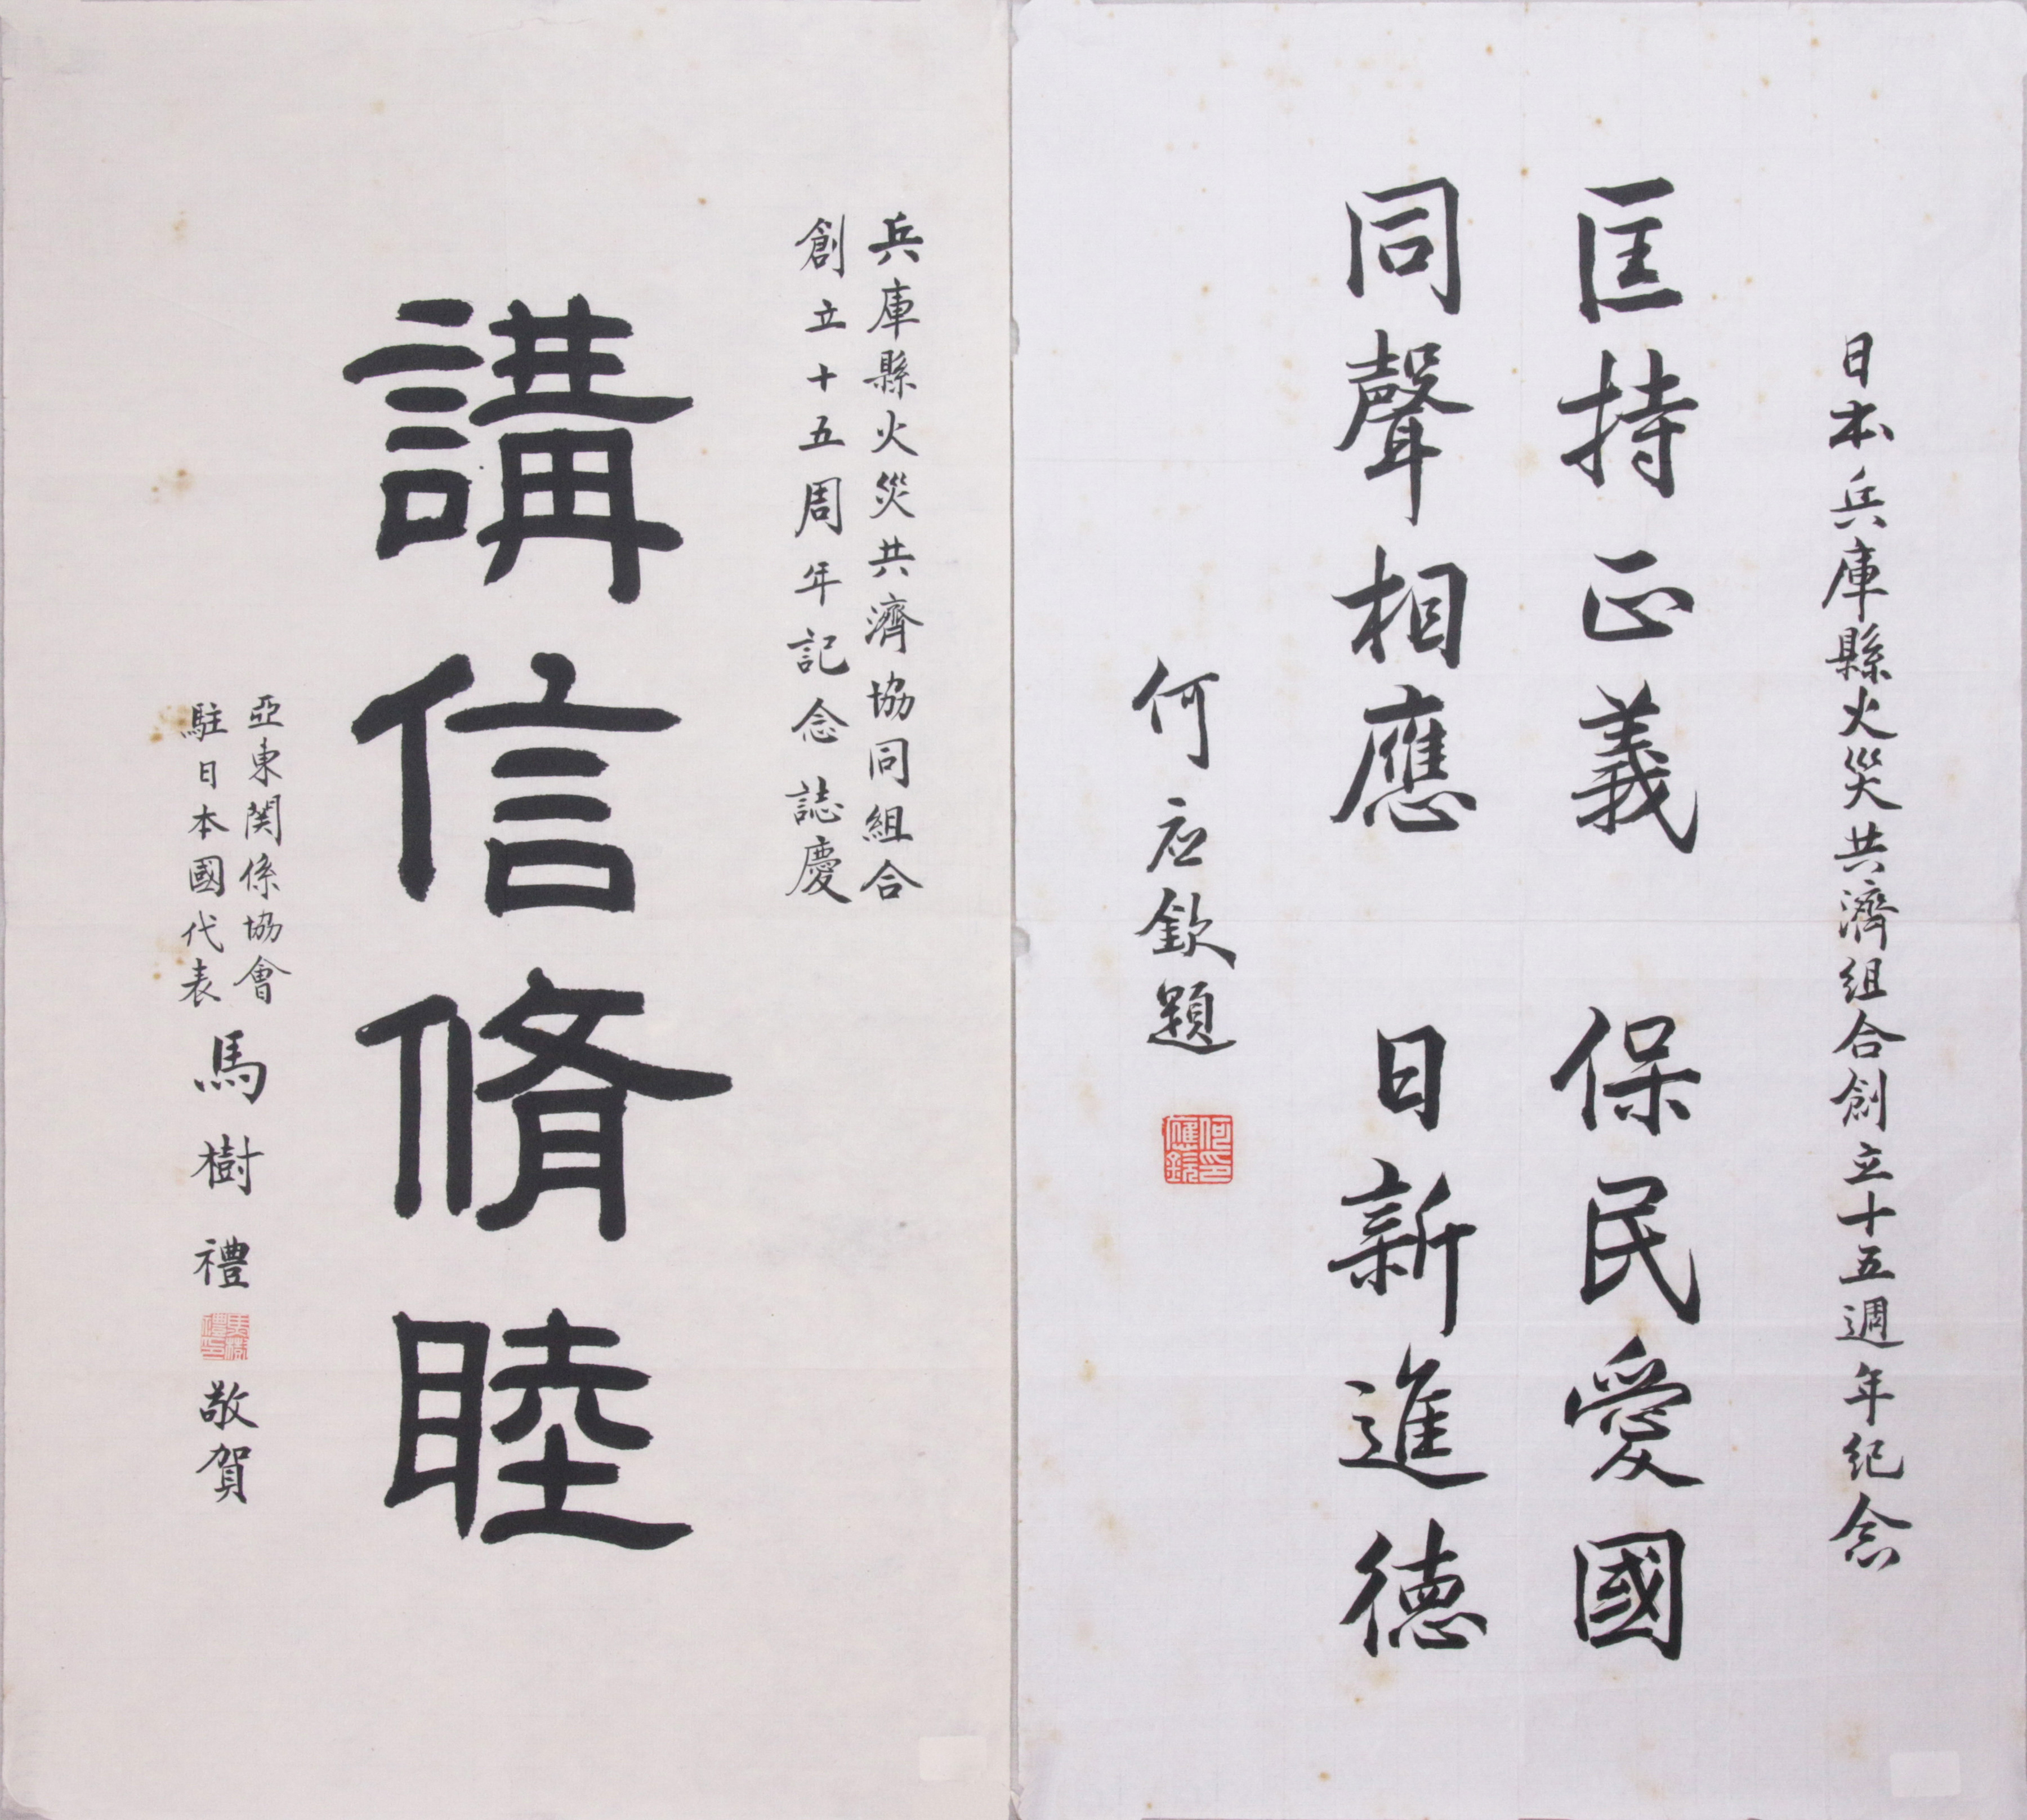 日本兵庫縣火災共濟組合創立十五週年紀念
匡持正義 保民愛國
同聲相應 日新進德
何应欽題
何應欽印
兵庫縣火災共濟協同組合
創立十五周年記念誌慶
講信脩睦
亞東関係協會
駐日本國代表
馬樹禮
馬樹禮印
敬賀